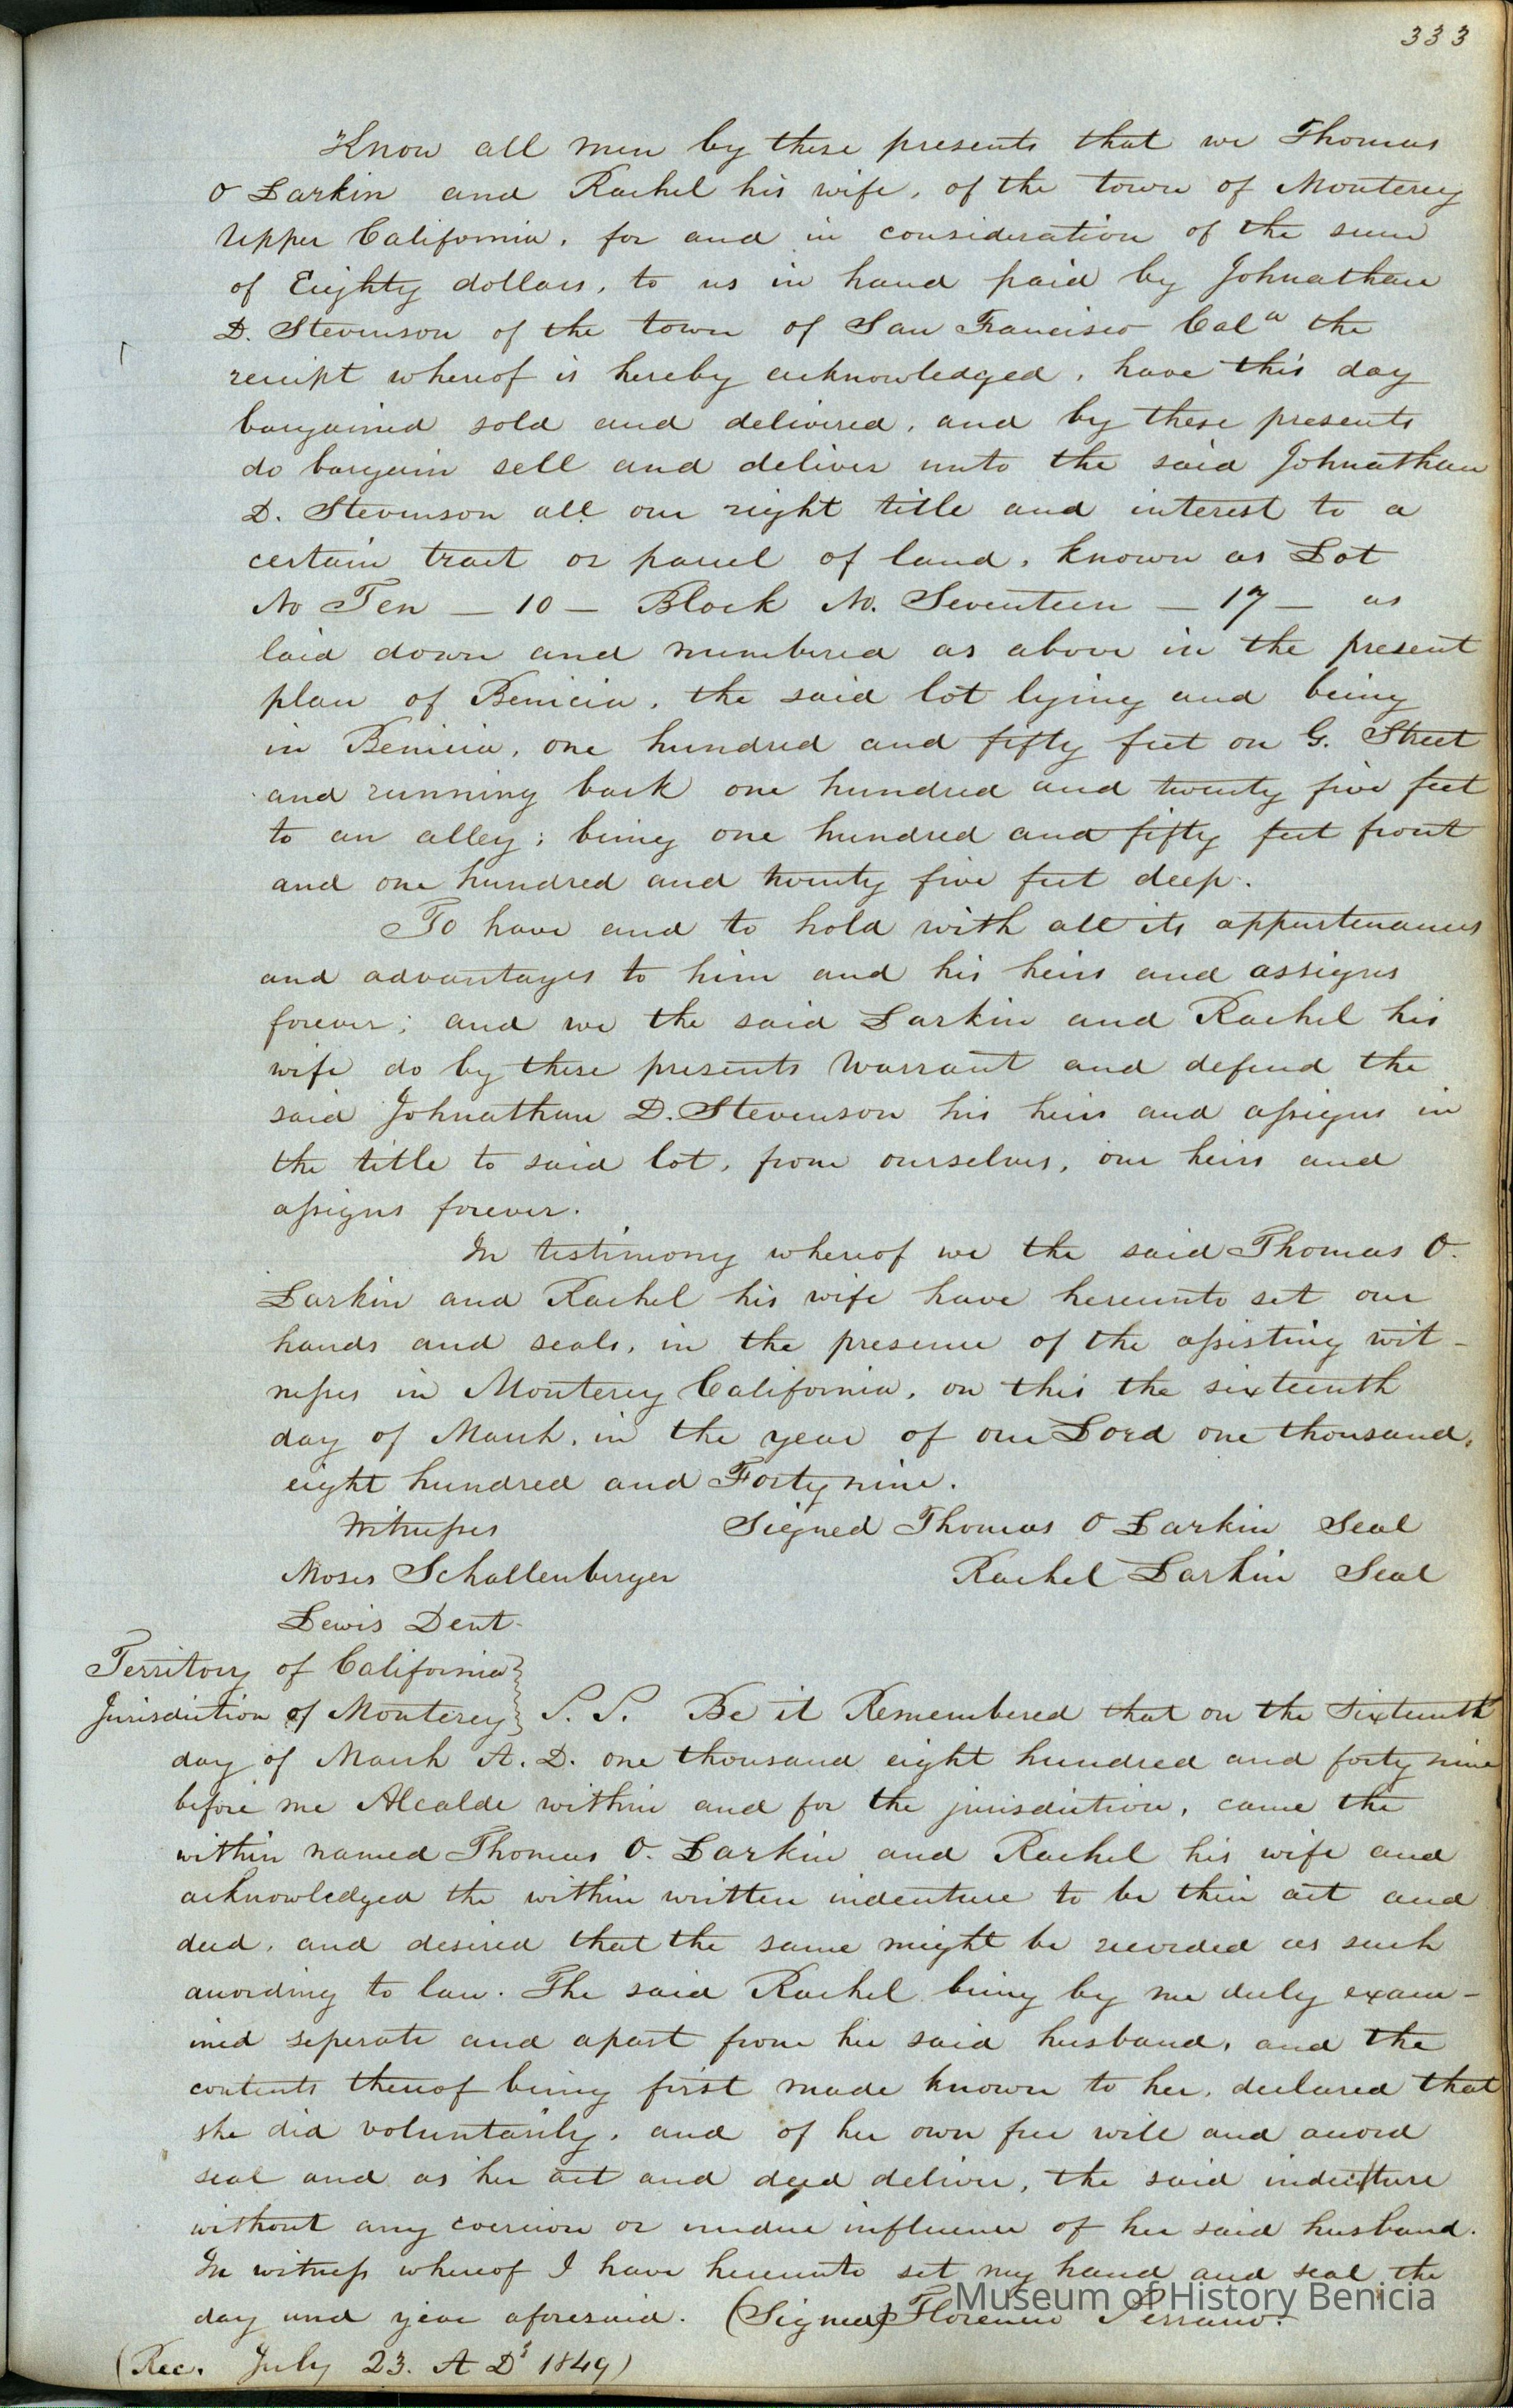 333
Know all men by these presents that we Thomas
O Larkin and Rachel his wife, of the town of Monterey
Upper California, for and in consideration of the sum
of Eighty dollars, to us in hand paid by Johnathan
D. Stevenson of the town of San Francisco Cala the
receipt whereof is hereby acknowledged, have this day
bargained sold and delivered, and by these presents
do bargain sell and deliver unto the said Johnathan
D. Stevenson all our right title and interest to a
certain tract or parcel of land, known as Lot
No Ten — 10 — Block No. Seventeen — 17 — as
laid down and numbered as above in the present
plan of Benicia, the said lot lying and being
in Benicia, one hundred and fifty feet on G. Street
and running back one hundred and twenty five feet
to an alley; being one hundred and fifty feet front
and one hundred and twenty five feet deep.
To have and to hold with all its appurtenances
and advantages to him and his heirs and assigns
forever; and we the said Larkin and Rachel his
wife do by these presents warrant and defend the
said Johnathan D. Stevenson his heirs and assigns in
the title to said lot, from ourselves, our heirs and
assigns forever.
In testimony whereof we the said Thomas O.
Larkin and Rachel his wife have hereunto set our
hands and seals, in the presence of the assisting wit-
nesses in Monterey California, on this the sixteenth
day of March, in the year of our Lord one thousand,
eight hundred and Forty nine.
Witnesses Signed Thomas O Larkin Seal
Moses Schallenberger Rachel Larkin Seal
Lewis Dent
Territory of California
Jurisdiction of Monterey S. S. Be it Remembered that on the Sixteenth
day of March A. D. one thousand eight hundred and forty nine
before me Alcalde within and for the jurisdiction, came the
within named Thomas O. Larkin and Rachel his wife and
acknowledged the within written indenture to be their act and
deed, and desired that the same might be recorded as such
according to law. The said Rachel being by me duly exam-
ined seperate and apart from her said husband, and the
contents thereof being first made known to her, declared that
she did voluntarily, and of her own free will and accord
seal and as her act and deed deliver, the said indenture
without any coercion or undue influence of her said husband.
In witness whereof I have hereunto set my hand and seal the
day and year aforesaid. (Signed) Florencio Serrano.
(Rec. July 23. A Ds 1849)
Museum of History Benicia